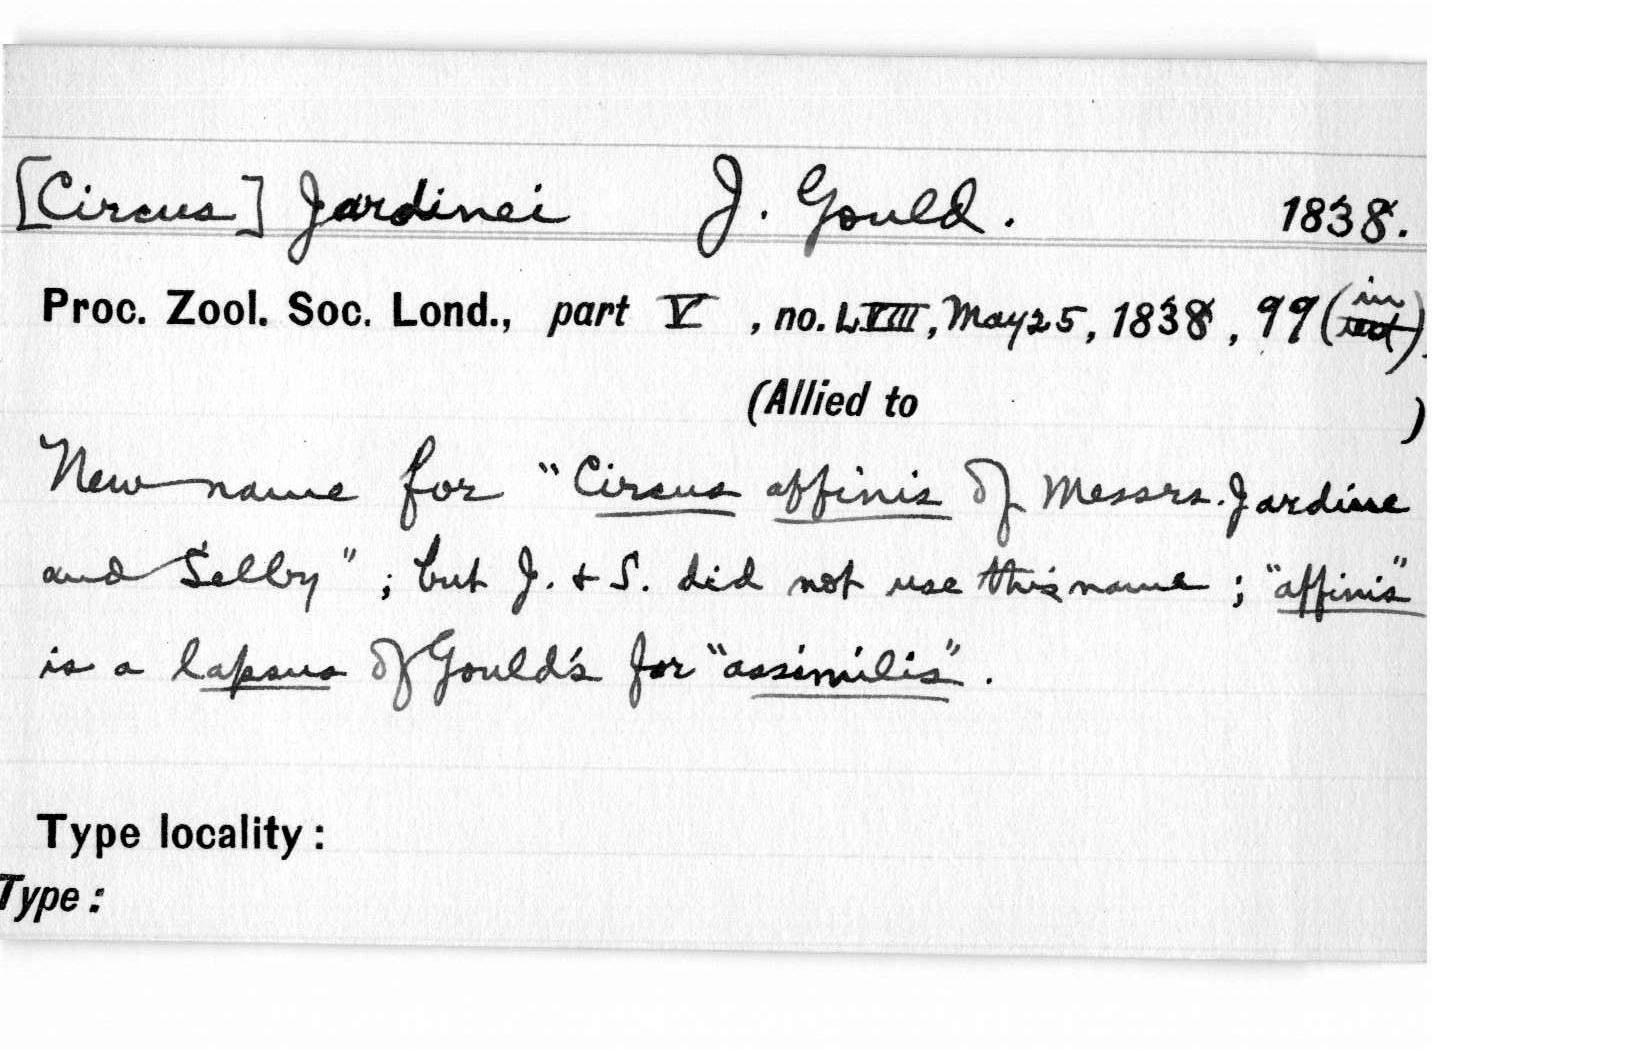 [Circus] Jardinei J. Gould. 1838.
Proc. Zool. Soc. Lond., part V, no. LVIII, May 25, 1838, 99 (in
(Allied to )
New name for "Circus affinis of Messrs. Jardine
and Selby"; but J. + S. did not use this name; "affinis"
is a lapsus of Gould's for "assimilis".
Type locality:
Type: